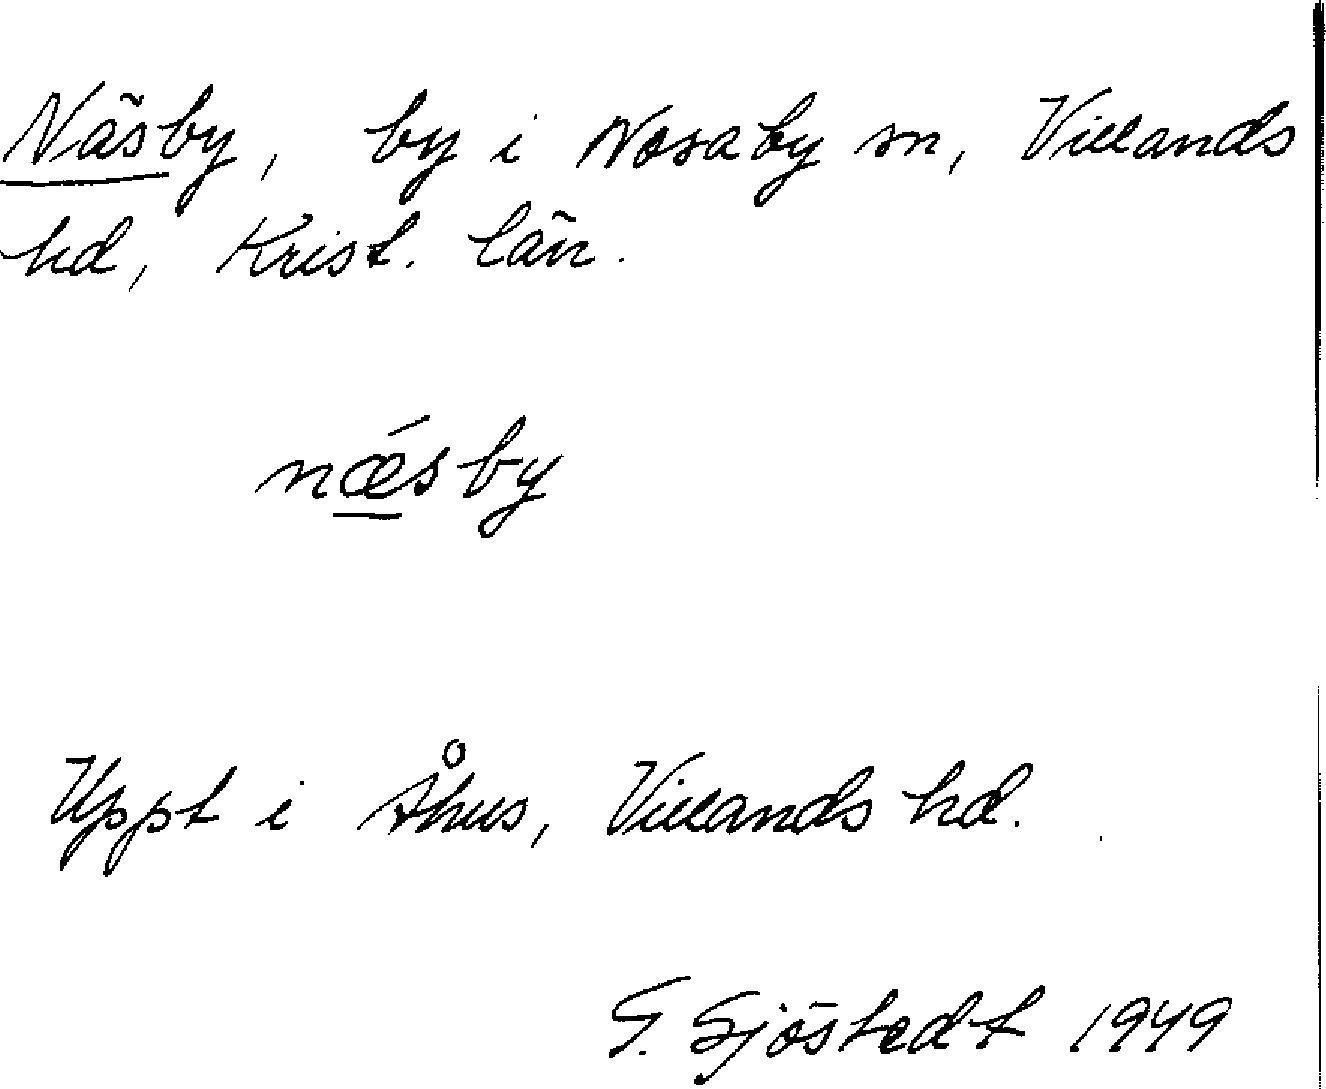 Näsby, by i Nosaby sn, Villands
hd, Krist. län.
nǽsby
Uppt i Åhus, Villands hd.
G. Sjöstedt 1949